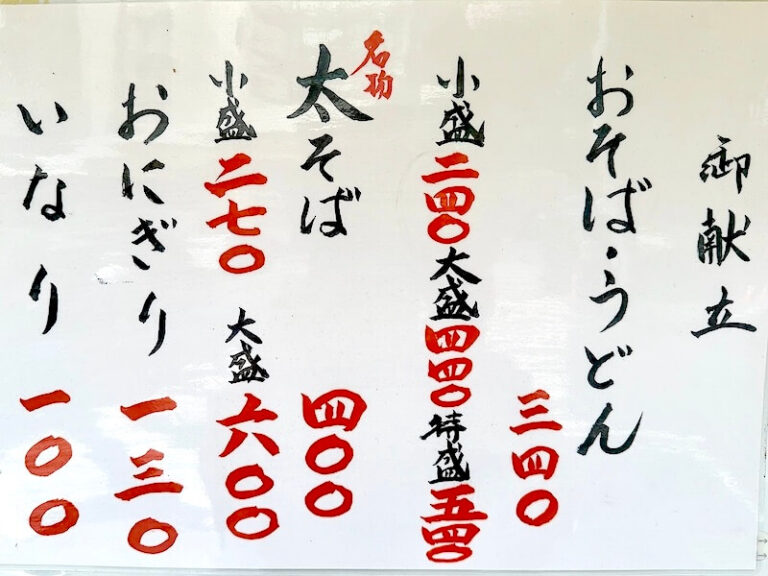 御献立
おそば・うどん
三四〇
小盛二四〇大盛四四〇特盛五四〇
名物
太そば
四〇〇
小盛二七〇 大盛六〇〇
おにぎり 一三〇
いなり 一〇〇